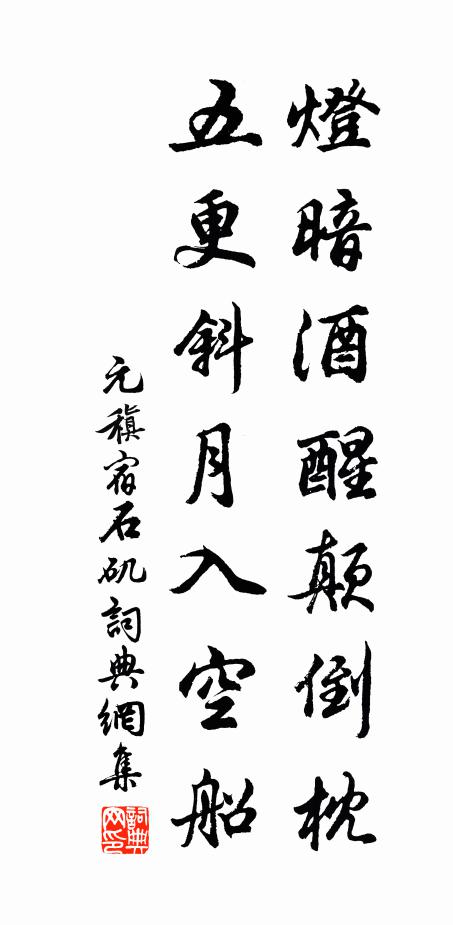 燈暗酒醒顛倒枕
五更斜月入空船
元稹宿石矶詞典網集
詞典网印